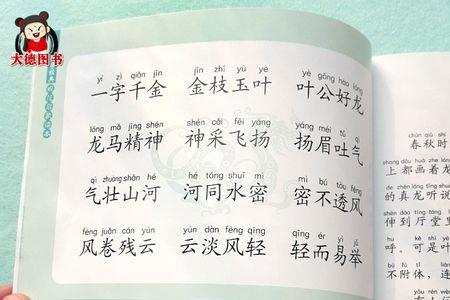 大德图书
yí zì qiān jīn jīn zhī yù yè yè gōng hào lóng
一字千金 金枝玉叶 叶公好龙
lóng mǎ jīng shén shén cǎi fēi yáng yáng méi tǔ qì
龙马精神 神采飞扬 扬眉吐气
qì zhuàng shān hé hé tóng shuǐ mì mì bù tòu fēng
气壮山河 河同水密 密不透风
fēng juǎn cán yún yún dàn fēng qīng qīng ér yì jǔ
风卷残云 云淡风轻 轻而易举
chūn qiū shí
春秋时
shang dōu huà zhe lóng
上都画着龙
de zhēn lóng tīng shuō
的真龙听说
伸到厅堂里
呼,可是叶
bù fù tǐ lián
不附体,连